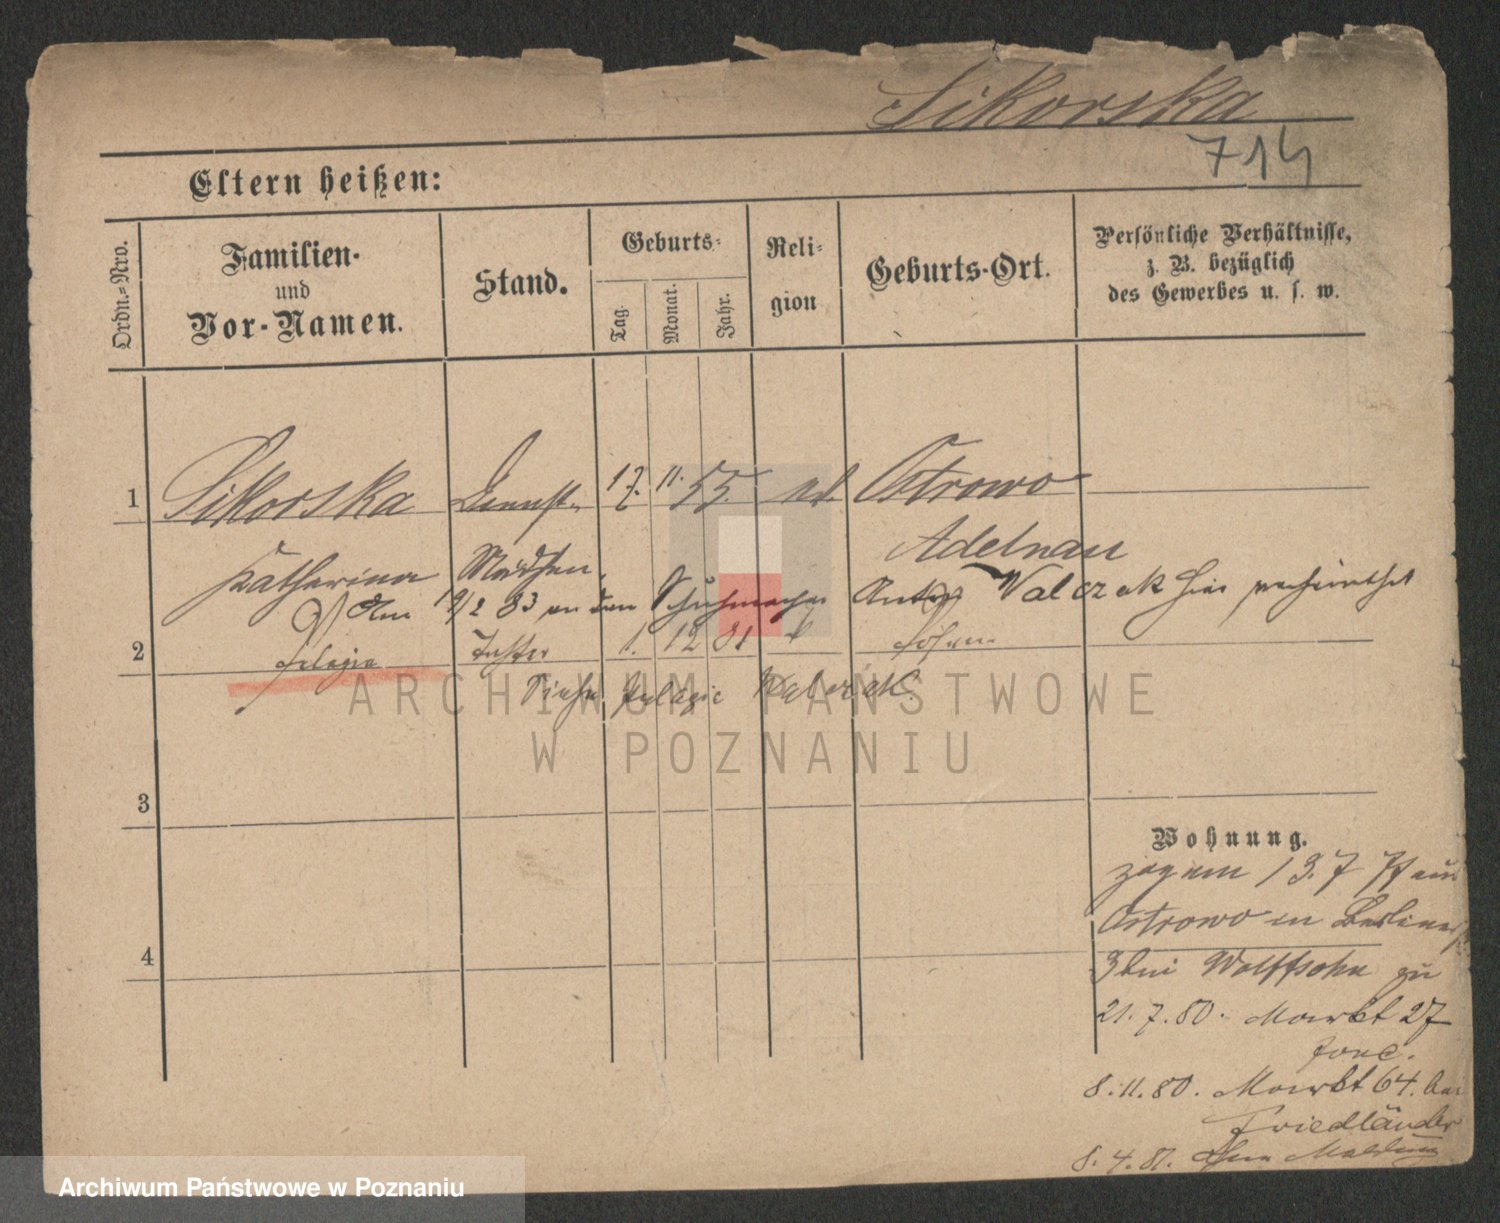 Sikorska
714
Eltern heißen:
Ordn.-Nro.
Familien-
und
Vor-Namen.
Stand.
Geburts-
Tag.
Monat.
Jahr.
Reli-
gion
Geburts-Ort.
Persönliche Verhältnisse,
z. B. bezüglich
des Gewerbes u. s. w.
1 Sikorska Dienst- 17. 11. 55. Ostrowo
Katharina Mädchen Adelnau
Am 19/2 83 an den Schuhmacher Anton Walczak hier verheirathet
2 Pelagia Tochter 1. 12 81 Posen
Siehe Pelagie Walczak.
3
4
Wohnung.
zog am 13. 7 aus
Ostrowo in Berliner
3 bei Wolffsohn zu
21. 7. 80. Markt 27
8. 11. 80. Markt 64. bei
Friedländer
8. 4. 81. Ohne Meldung
ARCHIWUM PAŃSTWOWE
W POZNANIU
Archiwum Państwowe w Poznaniu